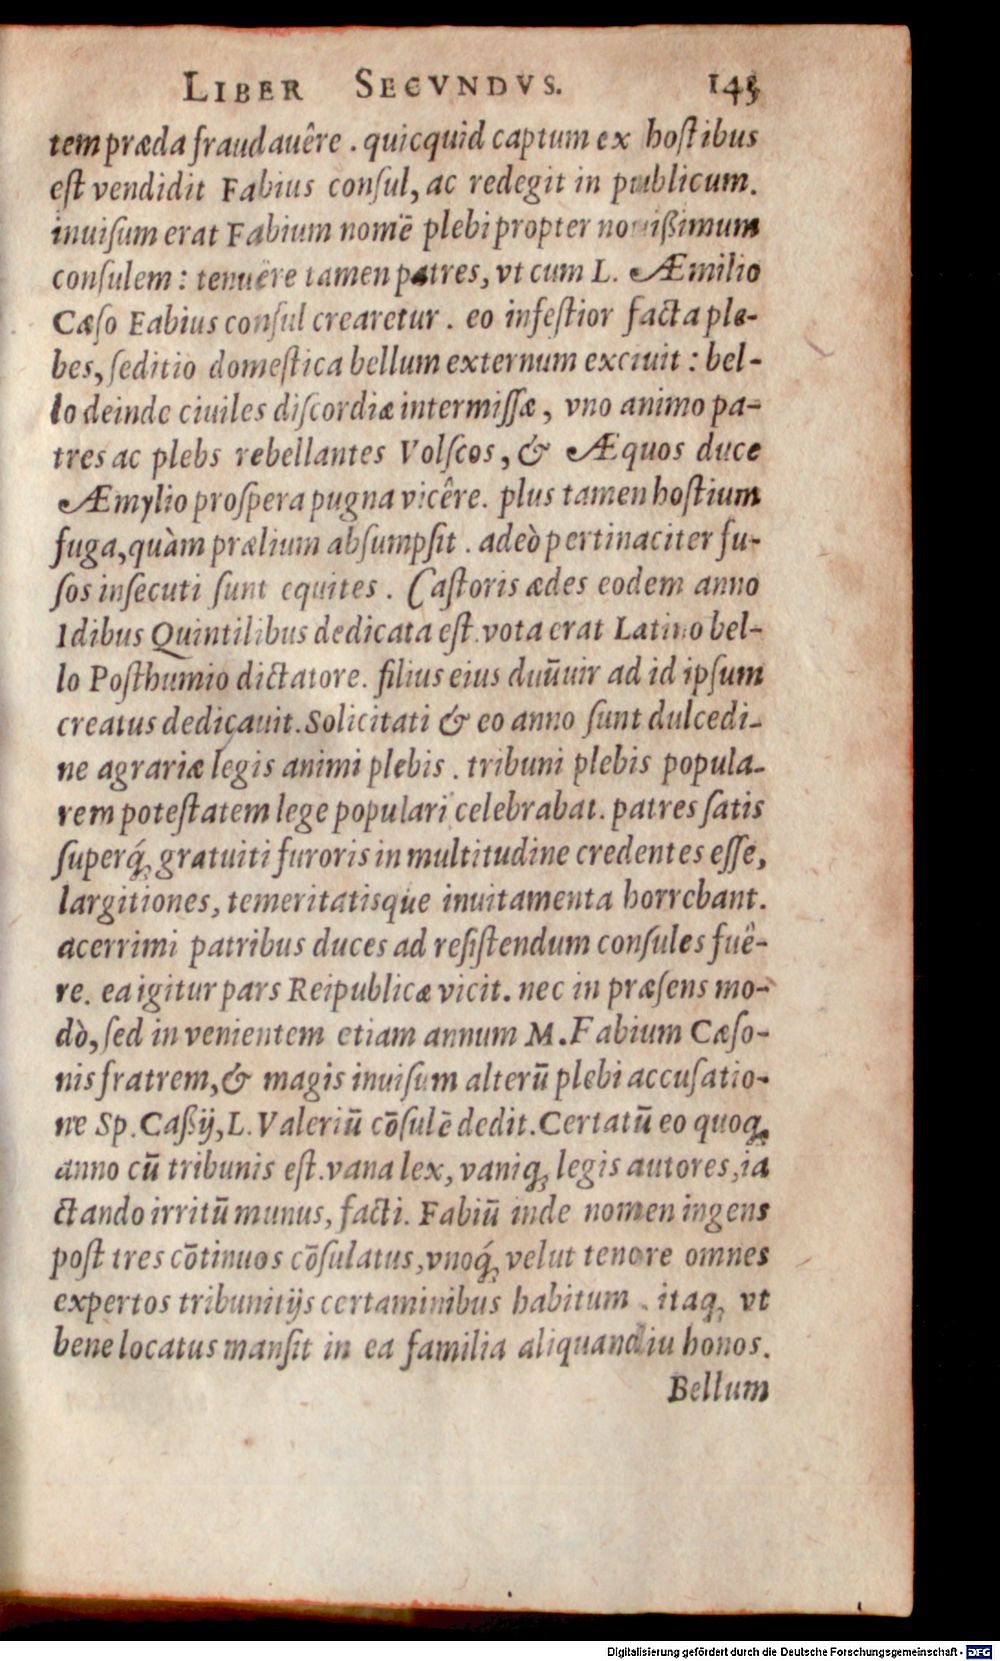 LIBER SECVNDVS. 145
tem præda fraudauêre . quicquid captum ex hoſtibus
eſt vendidit Fabius conſul, ac redegit in publicum.
inuiſum erat Fabium nomē plebi propter nouißimum
conſulem : tenuêre tamen patres, vt cum L. Æmilio
Cæſo Fabius conſul crearetur . eo infeſtior facta ple-
bes, ſeditio domeſtica bellum externum exciuit : bel-
lo deinde ciuiles diſcordiæ intermiſſæ, vno animo pa-
tres ac plebs rebellantes Volſcos, & Æquos duce
Æmylio proſpera pugna vicêre. plus tamen hoſtium
fuga, quàm prælium abſumpſit . adeò pertinaciter fu-
ſos inſecuti ſunt equites . Caſtoris ædes eodem anno
Idibus Quintilibus dedicata eſt. vota erat Latino bel-
lo Poſthumio dictatore. filius eius duūuir ad id ipſum
creatus dedicauit. Solicitati & eo anno ſunt dulcedi-
ne agrariæ legis animi plebis . tribuni plebis popula-
rem poteſtatem lege populari celebrabat. patres ſatis
ſuperq́; gratuiti furoris in multitudine credentes eſſe,
largitiones, temeritatisque inuitamenta horrebant.
acerrimi patribus duces ad reſiſtendum conſules fuê-
re. ea igitur pars Reipublicæ vicit. nec in præſens mo-
dò, ſed in venientem etiam annum M. Fabium Cæſo-
nis fratrem, & magis inuiſum alterū plebi accuſatio-
ne Sp. Caßij, L. Valeriū cōſulē dedit. Certatū eo quoq;
anno cū tribunis eſt. vana lex, vaniq; legis autores, ia
ctando irritū munus, facti. Fabiū inde nomen ingens
poſt tres cōtinuos cōſulatus, vnoq́; velut tenore omnes
expertos tribunitijs certaminibus habitum . itaq; vt
bene locatus manſit in ea familia aliquandiu honos.
Bellum
Digitalisierung gefördert durch die Deutsche Forschungsgemeinschaft - DFG